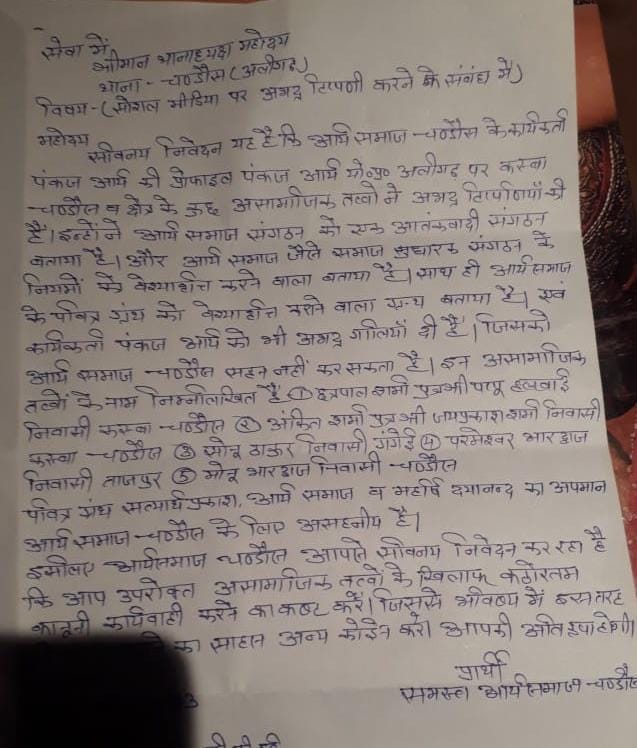 सेवा में
श्रीमान थानाध्यक्ष महोदय
थाना - चण्डौस (अलीगढ़)
विषय - (सोशल मीडिया पर अभद्र टिप्पणी करने के संबंध में)
महोदय
सविनय निवेदन यह है कि आर्य समाज - चण्डौस के कार्यकर्ता
पंकज आर्य की प्रोफाइल पंकज आर्य अलीगढ़ पर कस्बा
चण्डौस व क्षेत्र के कुछ असामाजिक तत्वों ने अभद्र टिप्पणियाँ की
हैं। इन्होंने आर्य समाज संगठन को एक आतंकवादी संगठन
बताया है। और आर्य समाज जैसे समाज सुधारक संगठन के
नियमों को वैश्यावृत्ति करने वाला बताया है। साथ ही आर्य समाज
के पवित्र ग्रंथ को वैश्यावृत्ति कराने वाला ग्रन्थ बताया है। एवं
कार्यकर्ता पंकज आर्य को भी अभद्र गालियाँ दी हैं। जिसको
आर्य समाज - चण्डौस सहन नहीं कर सकता है। इन असामाजिक
तत्वों के नाम निम्नलिखित हैं ① छत्रपाल शर्मा पुत्र श्री पप्पू हलवाई
निवासी कस्बा - चण्डौस ② अंकित शर्मा पुत्र श्री जयप्रकाश शर्मा निवासी
कस्बा - चण्डौस ③ सोनू ठाकुर निवासी ④ परमेश्वर भारद्वाज
निवासी ताजपुर ⑤ मोनू भारद्वाज निवासी - चण्डौस
पवित्र ग्रंथ सत्यार्थ प्रकाश, आर्य समाज व महर्षि दयानन्द का अपमान
आर्य समाज - चण्डौस के लिए असहनीय है।
इसलिए आर्यसमाज चण्डौस आपसे सविनय निवेदन कर रहा है
कि आप उपरोक्त असामाजिक तत्वों के खिलाफ कठोरतम
कानूनी कार्यवाही करने का कष्ट करें। जिससे भविष्य में इस तरह
का साहस अन्य कोई न करे। आपकी अति कृपा होगी।
प्रार्थी
समस्त आर्यसमाज - चण्डौस